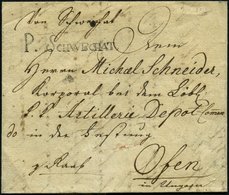 Von Schwechat
P. SCHWECHAT Dem
Herrn Michael Schneider,
Korporal bei dem Löbl.
Artillerie Depot
do in der Festung
Ofen
in Ungarn